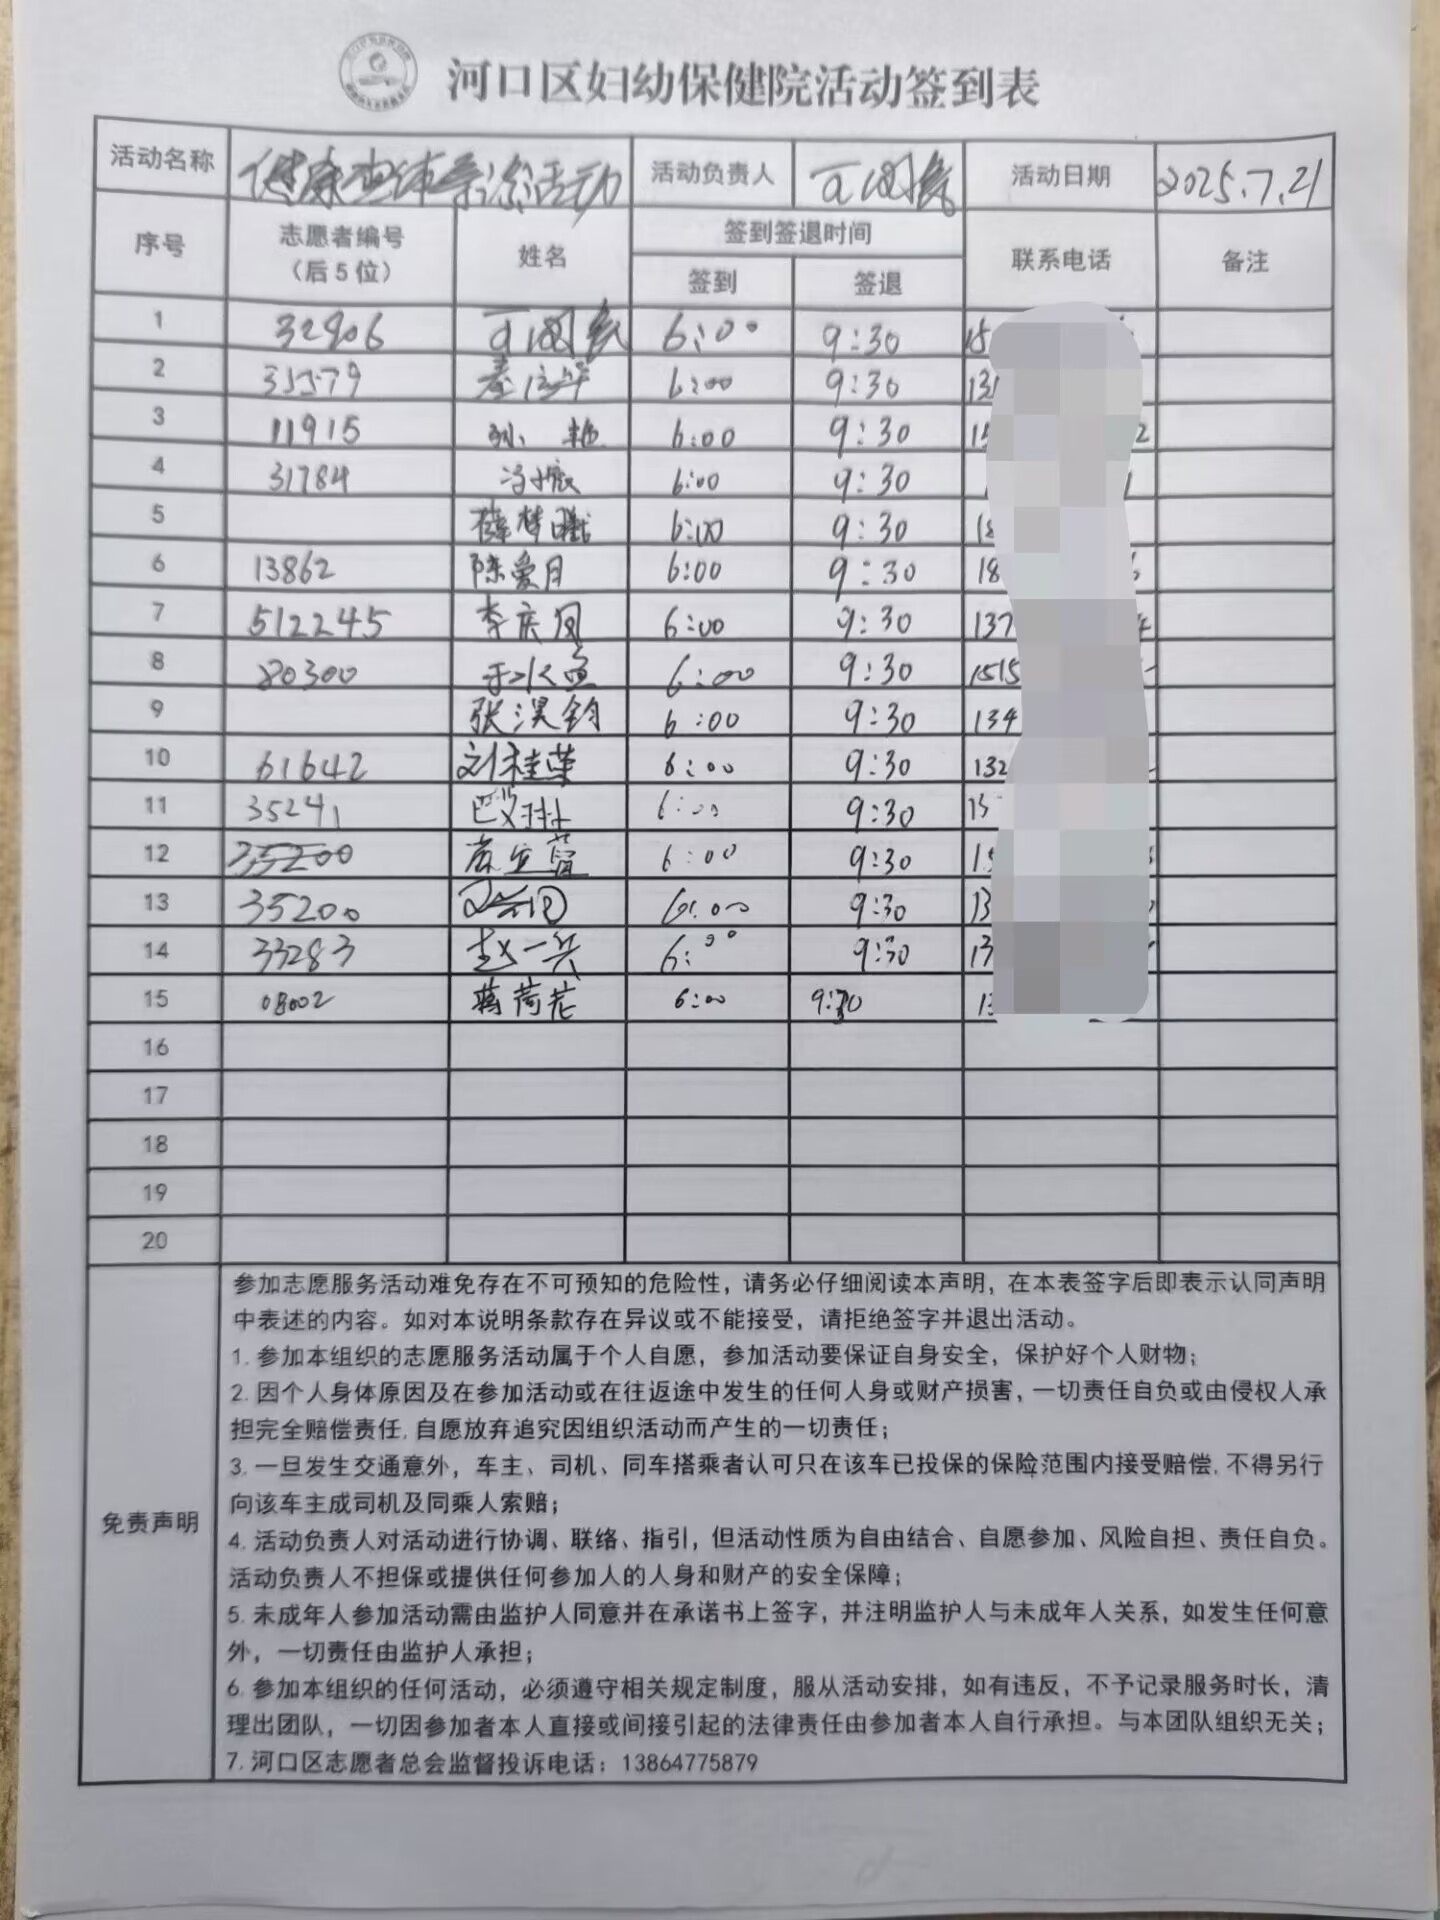 河口区妇幼保健院活动签到表
活动名称 健康查体导诊活动 活动负责人 活动日期 2025.7.21
序号 志愿者编号（后5位） 姓名 签到签退时间 联系电话 备注
签到 签退
1 32906 6:00 9:30 15
2 35579 6:00 9:30 131
3 11915 孙艳 6:00 9:30 15 2
4 31784 6:00 9:30
5 薛梦曦 6:00 9:30 18
6 13862 陈爱月 6:00 9:30 18
7 512245 李庆凤 6:00 9:30 137
8 80300 6:00 9:30 1515
9 张淏钧 6:00 9:30 134
10 61642 刘桂荣 6:00 9:30 132
11 35241 6:00 9:30 15
12 35200 6:00 9:30 15
13 35200 6:00 9:30 13
14 33283 赵一兴 6:00 9:30 13
15 08002 蒋荷花 6:00 9:30 13
16
17
18
19
20
免责声明
参加志愿服务活动难免存在不可预知的危险性，请务必仔细阅读本声明，在本表签字后即表示认同声明
中表述的内容。如对本说明条款存在异议或不能接受，请拒绝签字并退出活动。
1. 参加本组织的志愿服务活动属于个人自愿，参加活动要保证自身安全，保护好个人财物；
2. 因个人身体原因及在参加活动或在往返途中发生的任何人身或财产损害，一切责任自负或由侵权人承
担完全赔偿责任,自愿放弃追究因组织活动而产生的一切责任；
3. 一旦发生交通意外，车主、司机、同车搭乘者认可只在该车已投保的保险范围内接受赔偿,不得另行
向该车主成司机及同乘人索赔；
4. 活动负责人对活动进行协调、联络、指引，但活动性质为自由结合、自愿参加、风险自担、责任自负。
活动负责人不担保或提供任何参加人的人身和财产的安全保障；
5. 未成年人参加活动需由监护人同意并在承诺书上签字，并注明监护人与未成年人关系，如发生任何意
外，一切责任由监护人承担；
6. 参加本组织的任何活动，必须遵守相关规定制度，服从活动安排，如有违反，不予记录服务时长，清
理出团队，一切因参加者本人直接或间接引起的法律责任由参加者本人自行承担。与本团队组织无关；
7. 河口区志愿者总会监督投诉电话：13864775879